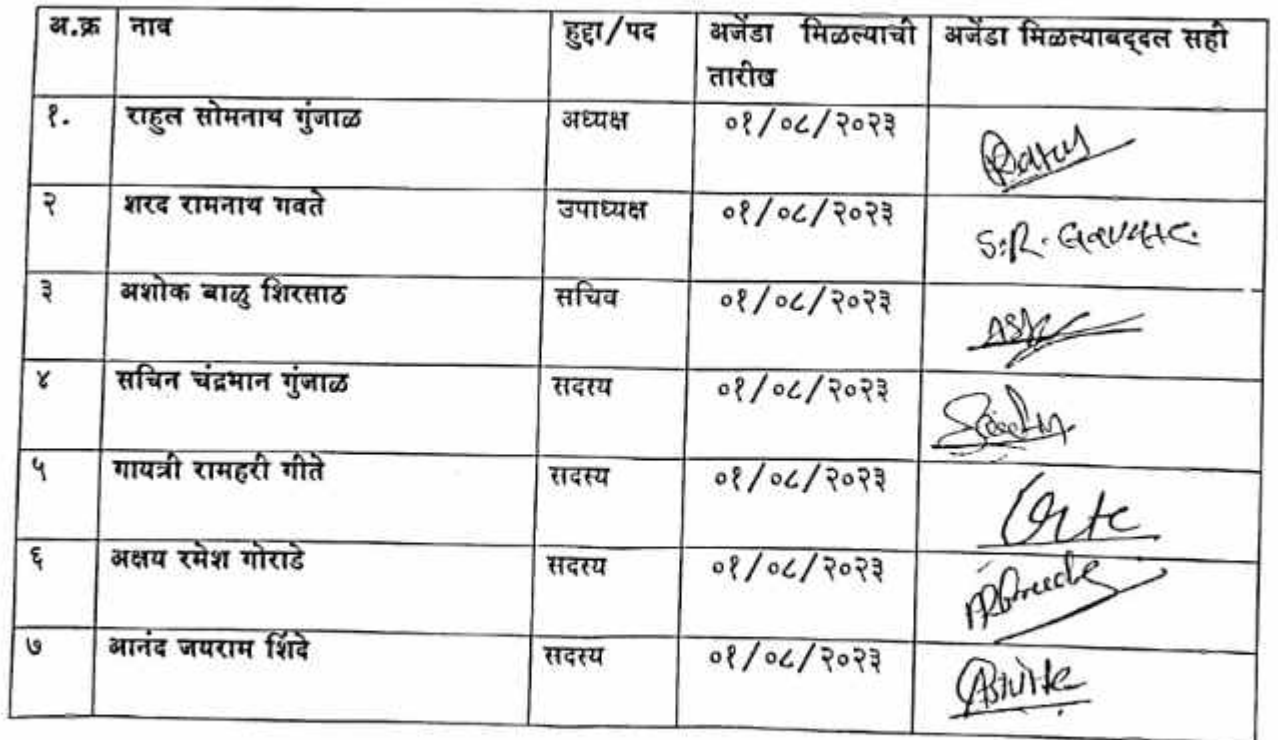 अ.क्र नाव हुद्दा/पद अजेंडा मिळाल्याची तारीख अजेंडा मिळाल्याबद्दल सही
१. राहुल सोमनाथ गुंजाळ अध्यक्ष ०१/०८/२०२३
२ शरद रामनाथ गवते उपाध्यक्ष ०१/०८/२०२३ S.R.
३ अशोक बाळु शिरसाठ सचिव ०१/०८/२०२३
४ सचिन चंद्रभान गुंजाळ सदस्य ०१/०८/२०२३
५ गायत्री रामहरी गीते सदस्य ०१/०८/२०२३
६ अक्षय रमेश गोराडे सदस्य ०१/०८/२०२३
७ आनंद जयराम शिंदे सदस्य ०१/०८/२०२३